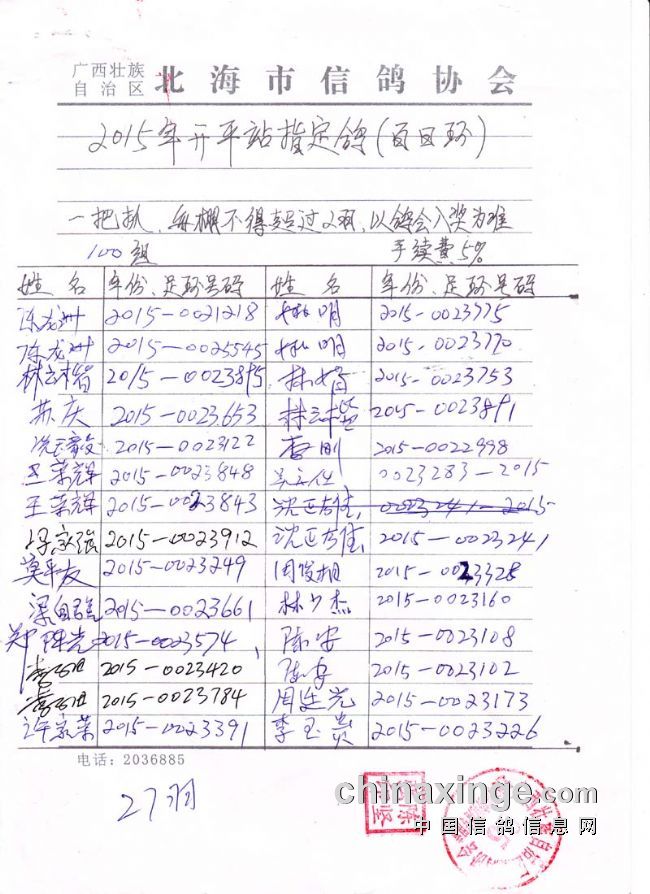 广西壮族
自治区 北海市信鸽协会
2015年开平站指定鸽(百日环)
一把扒、每棚不得超过2羽,以鸽会入奖为准
100组 手续费5%
姓名 年份、足环号码 姓名 年份、足环号码
陈龙洲 2015-0021218 明 2015-0023775
陈龙洲 2015-0025545 明 2015-0023770
林 2015-0023895 林 2015-0023753
苏庆 2015-0023653 林 2015-0023891
冼 毅 2015-0023122 刚 2015-0022998
王荣辉 2015-0023848 0023283-2015
王荣辉 2015-0023843 沈 0023241-2015
强 2015-0023912 沈 2015-0023241
莫平友 2015-0023249 周俊 2015-0023328
梁自强 2015-0023661 林少杰 2015-0023160
郑辉光 2015-0023574 陈安 2015-0023108
2015-0023420 陈安 2015-0023102
2015-0023784 周廷光 2015-0023173
许家荣 2015-0023391 李玉贵 2015-0023226
电话:2036885
27羽
chinaxinge.com
中国信鸽信息网